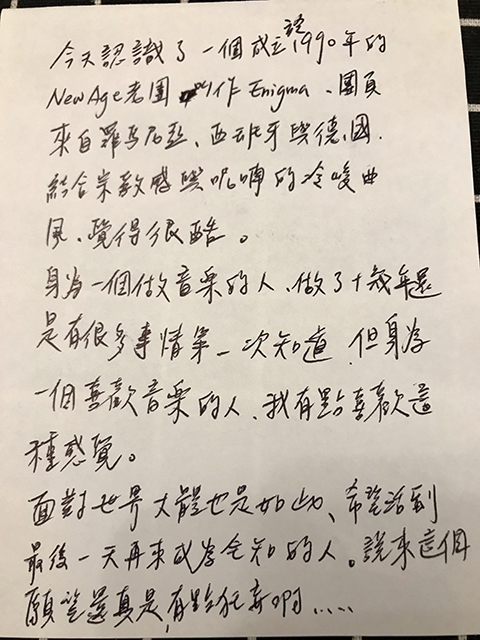 今天認識了一個成立於1990年的
New Age老團叫作 Enigma、團員
來自羅馬尼亞、西班牙與德國.
結合宗教感與呢喃的冷峻曲
風、覺得很酷。
身為一個做音樂的人、做了十幾年還
是有很多事情第一次知道,但身為
一個喜歡音樂的人、我有點喜歡這
種感覺。
面對世界大體也是如此、希望活到
最後一天再來成為全知的人。說來這個
願望還真是,有點狂妄啊.....